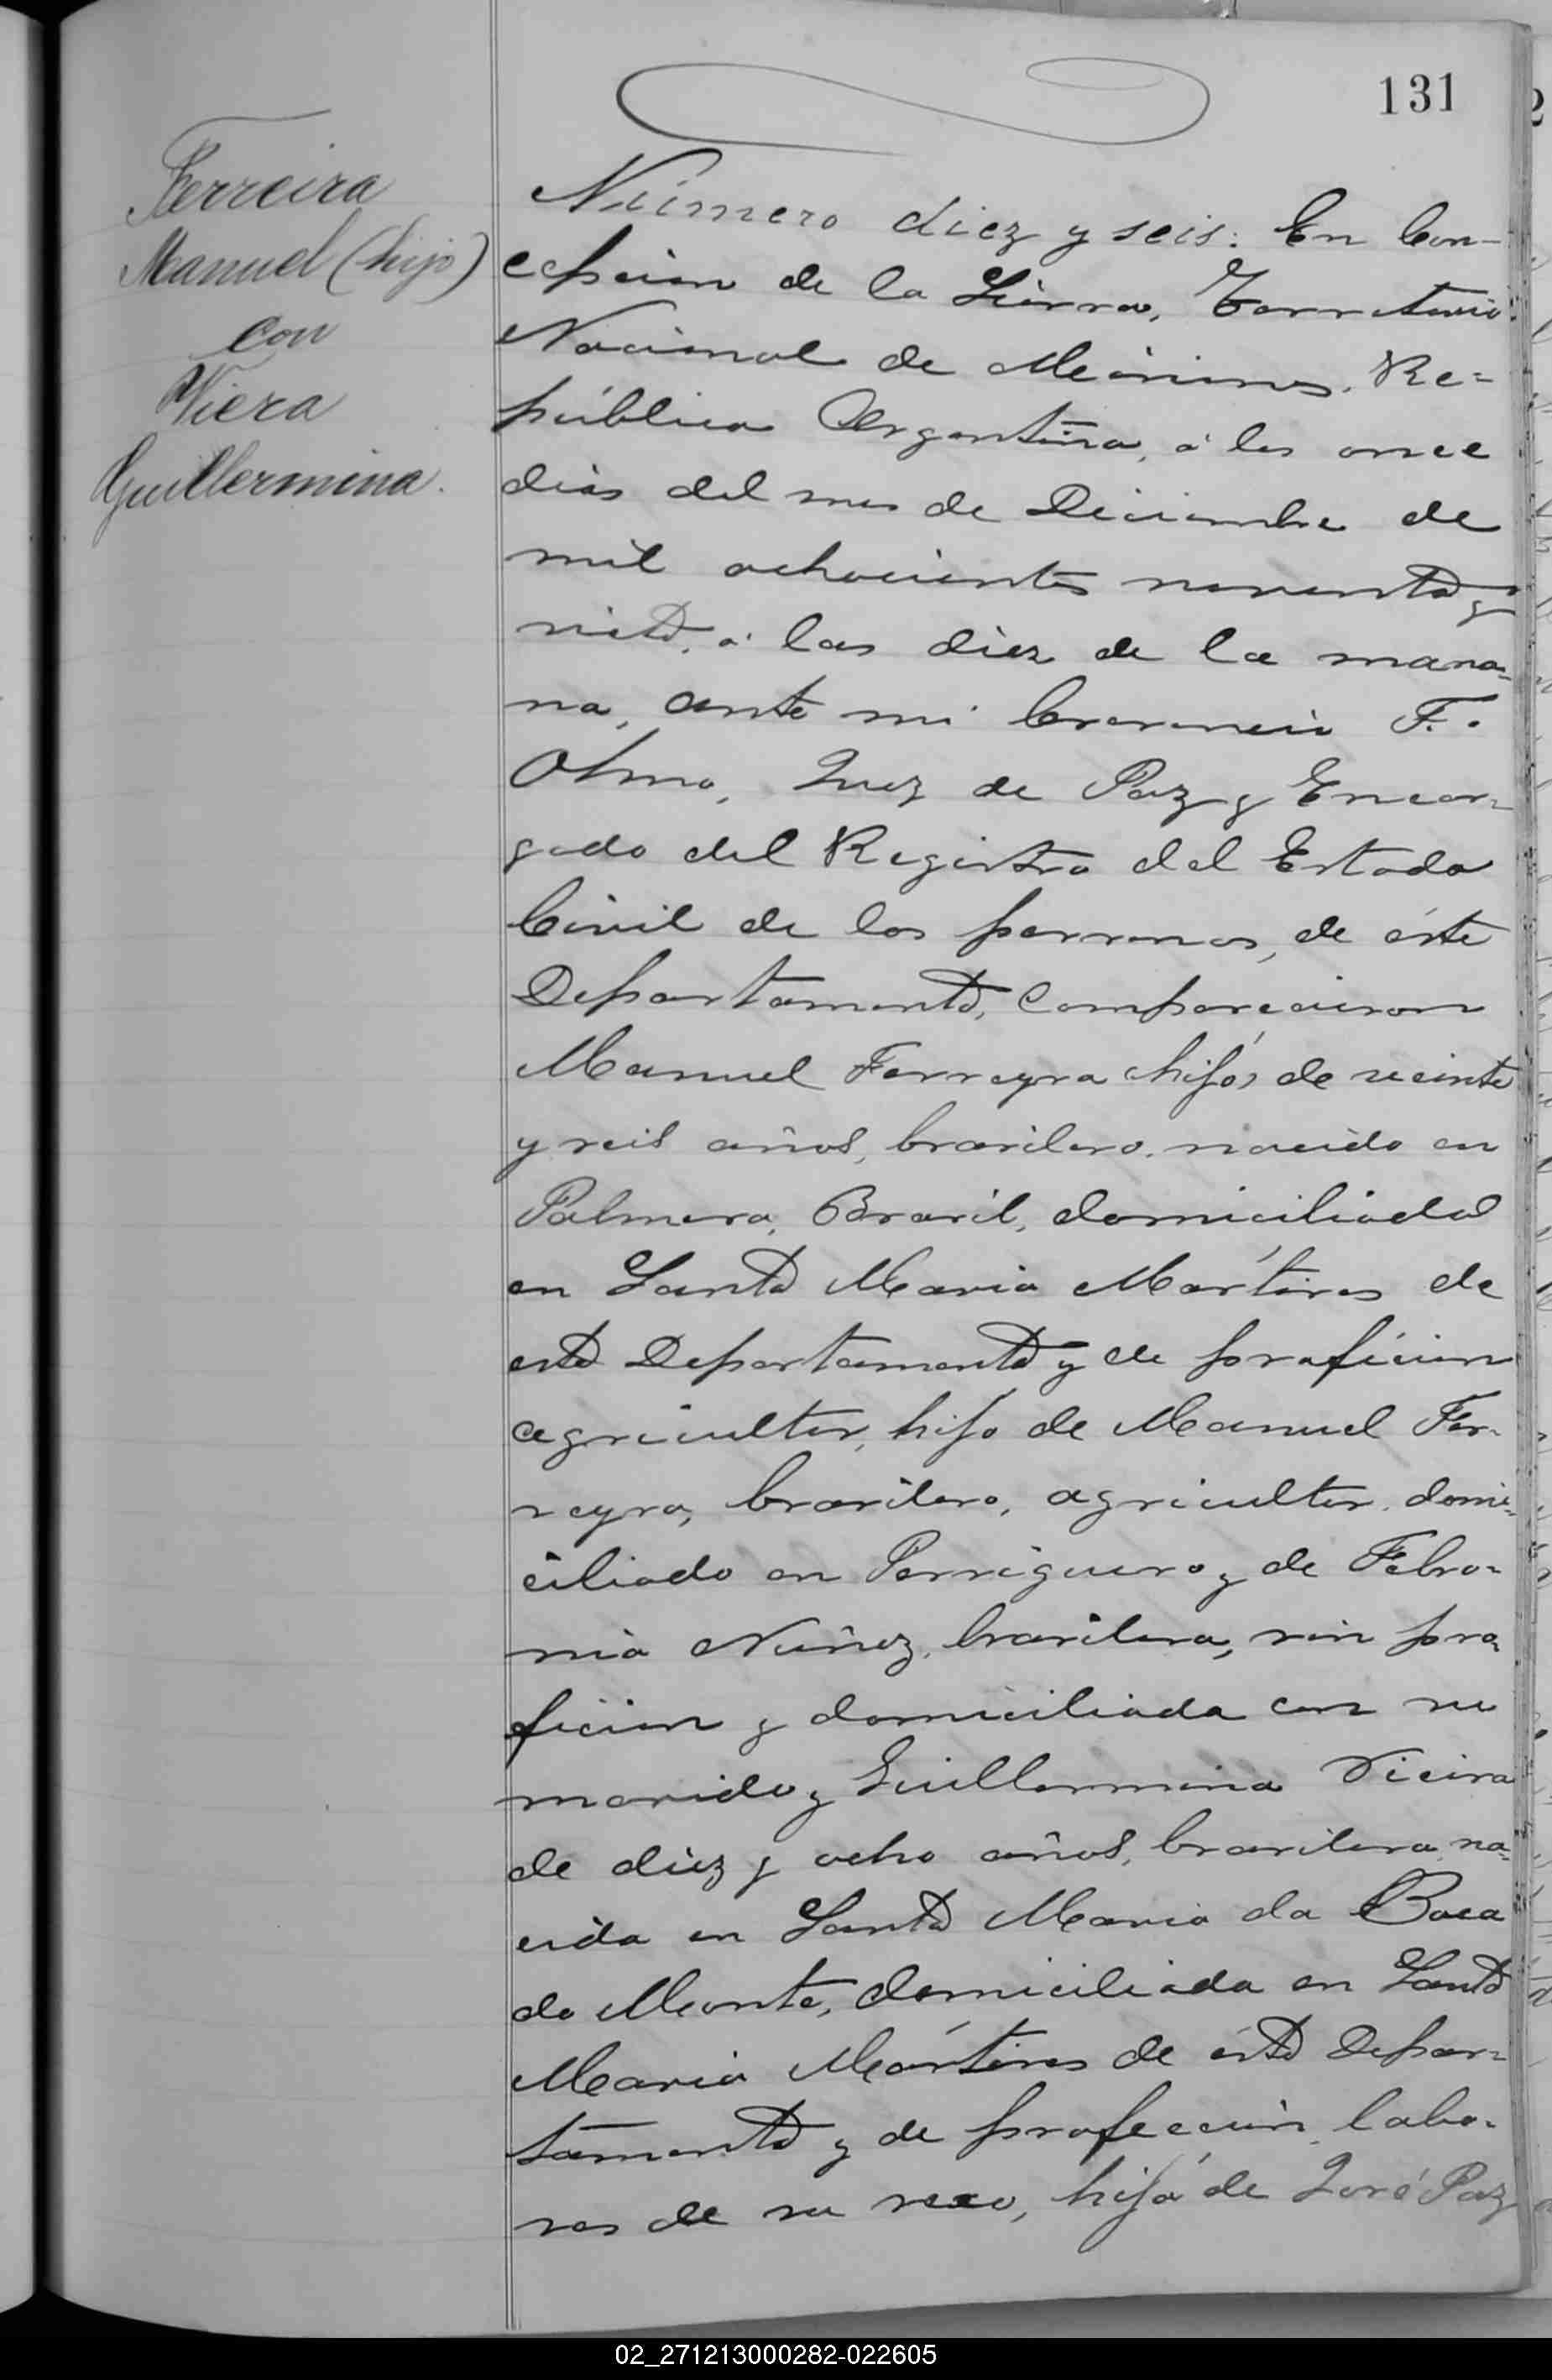 131
Ferreira
Manuel (hijo)
con
Viera
Guillermina.
Número diez y seis: En Con-
cepcion de la Sierra, Territorio
Nacional de Misiones. Re=
pública Argentina, á los once
dias del mes de Diciembre de
mil ochocientos noventa y
siete, á las diez de la maña=
na, ante mi F.
Olmo, Juez de Paz y Encar=
gado del Registro del Estado
Civil de las personas, de éste
Departamento, comparecieron
Manuel Ferreyra (hijo) de veinte
y seis años, brasilero, nacido en
Palmera, Brasil, domiciliado
en Santa Maria Mártires de
este Departamento y de profícion
agricultor, hijo de Manuel Fer-
reyra, brasilero, agricultor, domi=
ciliado en Persiguero y de Febro-
nia Nuñez, brasilera, sin pro-
ficion y domiciliada con su
marido y Guillermina Vieira
de diez y ocho años, brasilera, na=
cida en Santa Maria da Boca
do Monte, domiciliada en Santa
Maria Mártires de éste Depar=
tamento y de profeccion labo-
res de su sexo, hija de José Paz
02_271213000282-022605